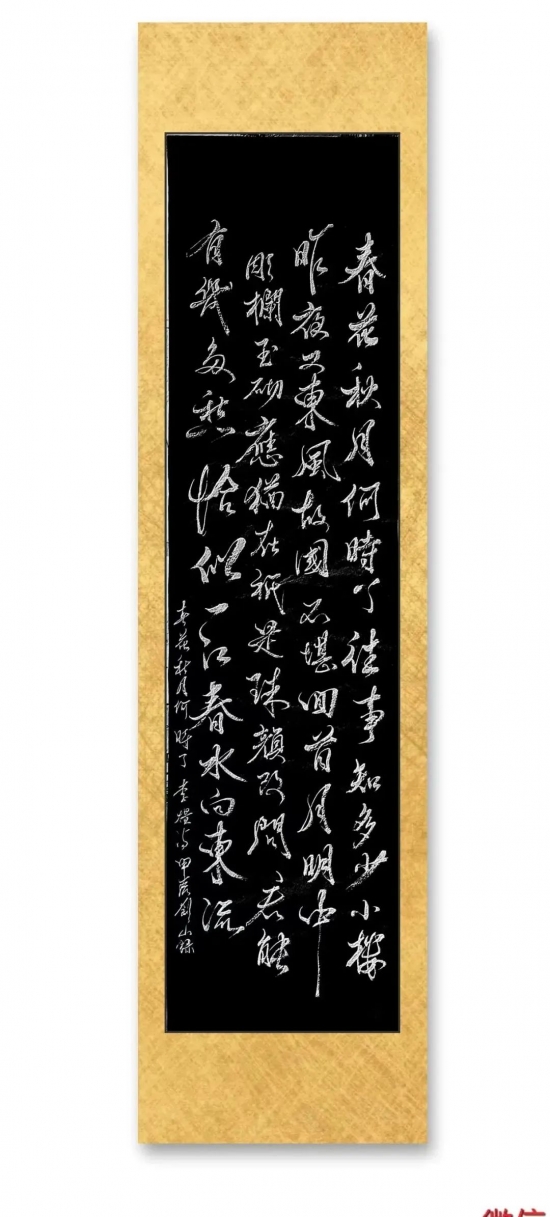 春花秋月何時了往事知多少小樓
昨夜又東風故國不堪回首月明中
彫欄玉砌應猶在祇是珠顏改問君能
有幾多愁恰似一江春水向東流
春花秋月何時了李煜詩甲辰劍山錄
微信